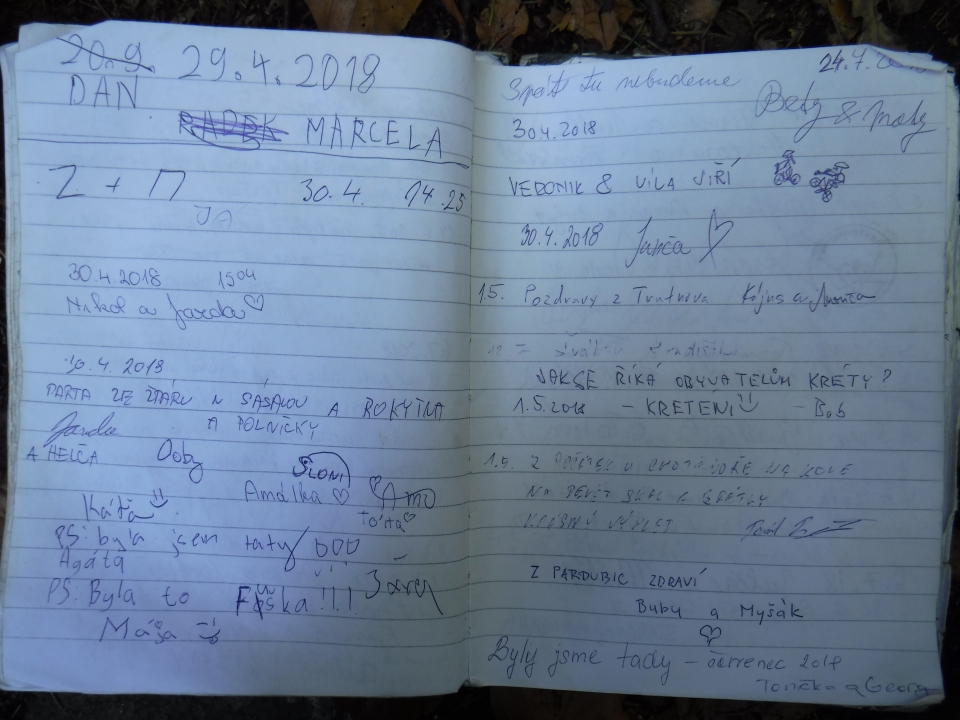 20.9. 29.4.2018
DAN
RADEK MARCELA
Z + M 30.4. 14.25
JA
30.4.2018 15 04
Nikol a Jarda
30.4.2018
PARTA ZE ŽĎÁRU N SÁSAVOU A ROKYTNA
Jarda A POLNIČKY
A HELČA Ooby
SLONI
Amálka
Káťa
PS: byla jsem taty
Agáta
PS: Byla to Fuška!!!
Mája
24.7.
Zpět tu nebudeme
Bety & Maty
30.4.2018
VERONIK & VÍLA JIŘÍ
30.4.2018 Junča
1.5. Pozdravy z Trutnova
JAK SE ŘÍKÁ OBYVATELŮM KRÉTY?
1.5.2018 - KRETENI - Bob
1.5. Z NA KOLE
NA DEVĚT SKAL
KRÁSNÝ VÝLET
Z PARDUBIC ZDRAVÍ
Buby a Myšák
Byly jsme tady - červenec 2018
Tonička a Georg